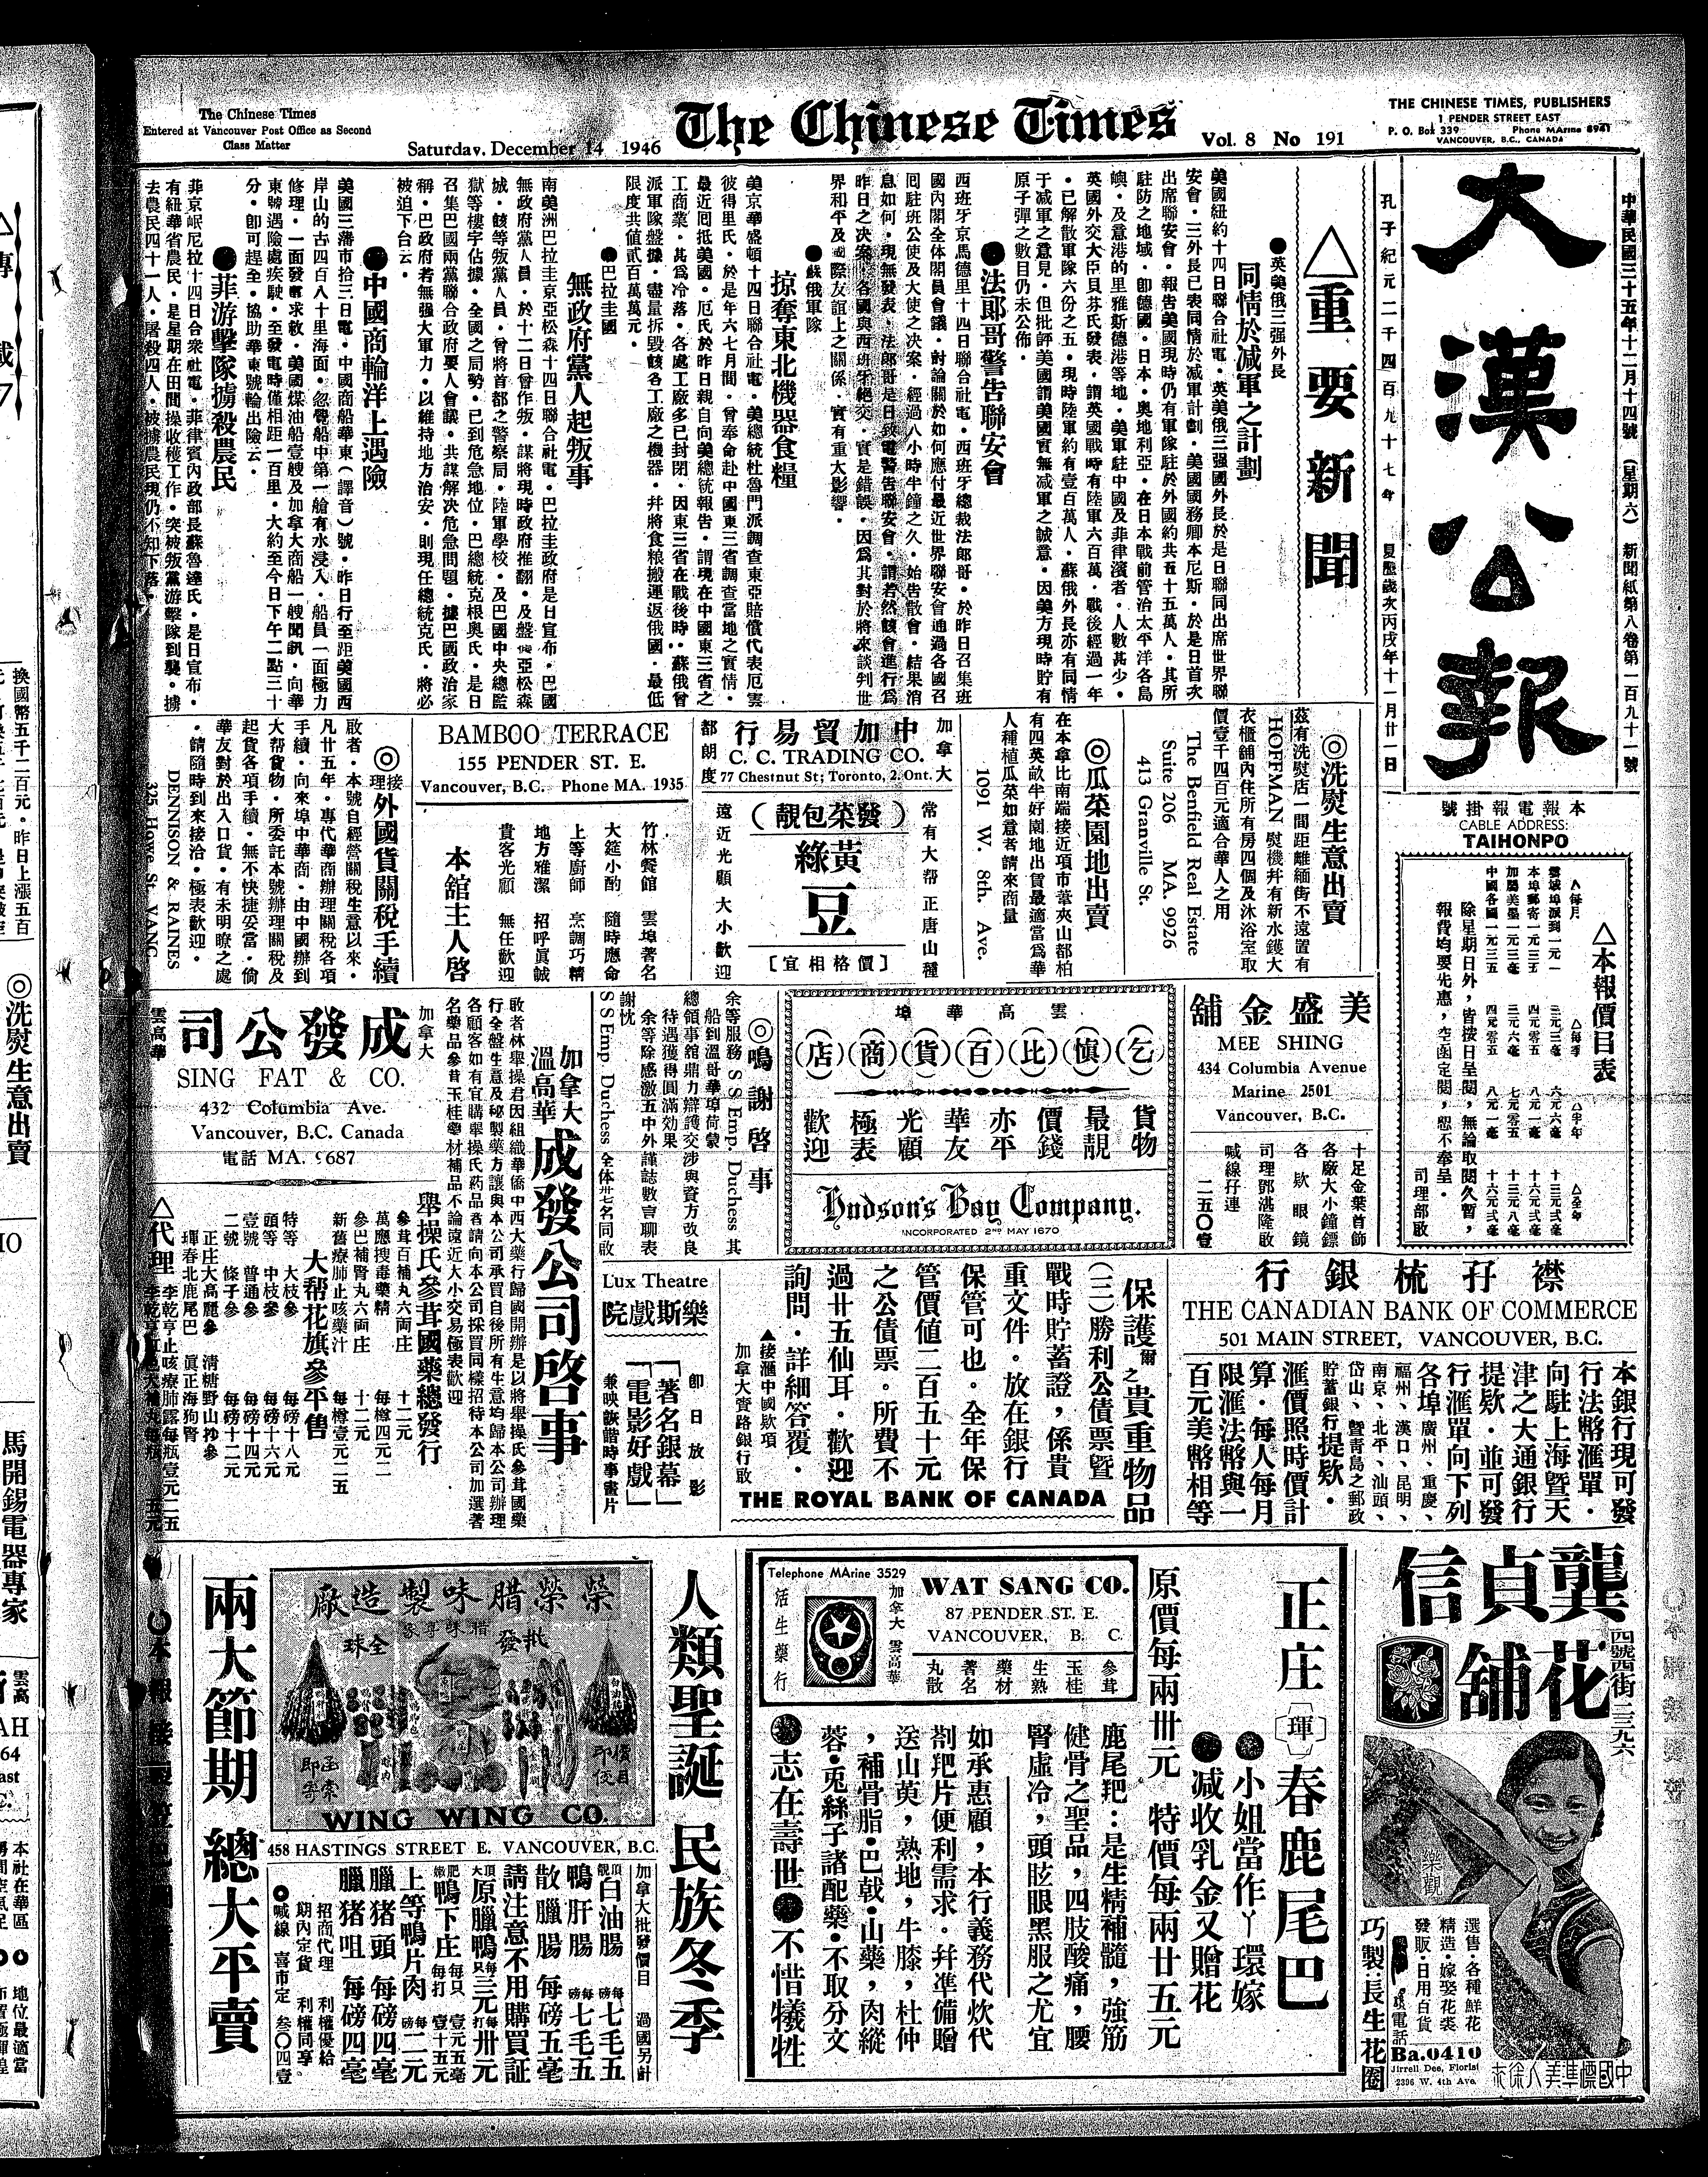 The Chinese Times
Entered at Vancouver Post Office as Second
Class Matter
Saturday, December 14 1946
The Chinese Times
Vol. 8 No 191
THE CHINESE TIMES, PUBLISHERS
1 PENDER STREET EAST
P. O. Box 339 Phone MArine 8941
VANCOUVER, B.C., CANADA
中華民國三十五年十二月十四號 (星期六) 新聞紙第八卷第一百九十一號
大漢公報
孔子紀元二千四百九十七年 夏歷歲次丙戌年十一月廿一日
本報電報掛號
CABLE ADDRESS:
TAIHONPO
△本報價目表
除星期日外，皆按日呈閱，無論取閱久暫，
報費均要先惠，空函定閱，恕不奉呈．
司理部啟
△重要新聞
●英美俄三强外長
同情於減軍之計劃
美國紐約十四日聯合社電．英美俄三强國外長於是日聯同出席世界聯
安會．三外長已表同情於減軍計劃．美國國務卿本尼斯．於是日首次
出席聯安會．報告美國現時仍有軍隊駐於外國約共五十五萬人．其所
駐防之地域．卽德國．日本．奧地利亞．在日本戰前管治太平洋各島
嶼．及意港的里雅斯德港等地．美軍駐中國及菲律濱者．人數其少．
英國外交大臣貝芬氏發表．謂英國戰時有陸軍六百萬．戰後經過一年
．已解散軍隊六份之五．現時陸軍約有壹百萬人．蘇俄外長亦有同情
于減軍之意見．但批評美國謂美國實無減軍之誠意．因美方現時貯有
原子彈之數目仍未公佈．
●法郞哥警告聯安會
西班牙京馬德里十四日聯合社電．西班牙總裁法郞哥．於昨日召集班
國內閣全体閣員會議．討論關於如何應付最近世界聯安會通過各國召
囘駐班公使及大使之决案．經過八小時半鐘之久．始告散會．結果消
息如何．現無發表．法郞哥是日致電警告聯安會．謂若然該會進行爲
昨日之决案．各國與西班牙絕交．實是錯誤．因爲其對於將來談判世
界和平及國際友誼上之關係．實有重大影響．
●蘇俄軍隊
掠奪東北機器食糧
美京華盛頓十四日聯合社電．美總統杜魯門派調查東亞賠償代表厄雲
彼得里氏．於是年六七月間．曾奉命赴中國東三省調查當地之實情．
最近囘抵美國．厄氏於昨日親自向美總統報告．謂現在中國東三省之
工商業．其爲冷落．各處工廠多已封閉．因東三省在戰後時．蘇俄曾
派軍隊盤據．盡量拆毀該各工廠之機器．幷將食粮搬運返俄國．最低
限度共值貳百萬萬元．
●巴拉圭國
無政府黨人起叛事
南美洲巴拉圭京亞松森十四日聯合社電．巴拉圭政府是日宣布．巴國
無政府黨人員．於十二日曾作叛．謀將現時政府推翻．及盤據亞松森
城．該等叛黨人員．曾將首都之警察局．陸軍學校．及巴國中央總監
獄等樓宇佔據．全國之局勢．已到危急地位．巴總統克根奧氏．是日
召集巴國兩黨聯合政府要人會議．共謀解决危急問題．據巴國政治家
稱．巴政府若無强大軍力．以維持地方治安．則現任總統克氏．將必
被迫下台云．
●中國商輪洋上遇險
美國三藩市拾三日電．中國商船華東(譯音)號．昨日行至距美國西
岸山的古四百八十里海面．忽覺船中第一艙有水浸入．船員一面極力
修理．一面發電求救．美國煤油船壹艘及加拿大商船一艘聞訊．向華
東號遇險處疾駛．至發電時僅相距一百里．大約至今日下午二點三十
分．卽可趕至．協助華東號輪出險云．
●菲游擊隊擄殺農民
菲京岷尼拉十四日合衆社電．菲律賓內政部長蘇魯達氏．是日宣布．
有紐華省農民．是星期在田間操收穫工作．突被叛黨游擊隊到襲．擄
去農民四十一人．屠殺四人．被擄農民現仍不知下落．
◎洗熨生意出賣
茲有洗熨店一間距離緬街不遠置有
HOFFMAN 熨機幷有新水鑊大
衣櫃舖內住所有房四個及沐浴室取
價壹千四百元適合華人之用
The Benfield Real Estate
Suite 206 MA. 9926
413 Granville St.
◎瓜菜園地出賣
在本拿比南端接近項市葦夾山都柏
有四英畝半好園地出賃最適當爲華
人種植瓜菜如意者請來商量
1091 W. 8th. Ave.
加拿大
中加貿易行
都朗度
C. C. TRADING CO.
77 Chestnut St; Toronto, 2. Ont.
(發菜包靚)
黃綠
豆
[價格相宜]
常有大帮正唐山種
遠近光顧大小歡迎
BAMBOO TERRACE
155 PENDER ST. E.
Vancouver, B.C. Phone MA. 1935
竹林餐館 雲埠著名
大筵小酌 隨時應命
上等廚師 烹調巧精
地方雅潔 招呼眞誠
貴客光顧 無任歡迎
本舘主人啓
◎接理外國貨關稅手續
啟者．本號自經營關稅生意以來．
凡廿五年．專代華商辦理關稅各項
手續．向來埠中華商．由中國辦到
大帮貨物．所委託本號辦理關稅及
起貨各項手續．無不快捷妥當．倘
華友對於出入口貨．有未明瞭之處
．請隨時到來接洽．極表歡迎．
DENNISON & RAINES
325 Howe St. VANC.
美盛金舖
MEE SHING
434 Columbia Avenue
Marine 2501
Vancouver, B.C.
十足金葉首飾
各廠大小鐘鏢
各欵眼鏡
司理鄧湛隆啟
喊線孖連
二五〇壹
雲高華埠
(乞)(愼)(比)(百)(貨)(商)(店)
貨物最靚
價錢亦平
華友光顧
極表歡迎
Hudson's Bay Company.
INCORPORATED 2ND MAY 1670
◎鳴謝啓事
余等服務 S S Emp. Duchess 其
船到溫哥華埠荷蒙
總領事舘鼎力辯護交涉與資方改良
待遇獲得圓滿効果
余等除感激五中外謹誌數言聊表
謝忱
S S Emp. Duchess 全体廿七名同啟
加拿大溫高華成發公司啓事
敢者林舉操君因組織華僑中西大藥行歸國開辦是以將舉操氏參茸國藥
行全盤生意及秘製藥方讓與本公司承買自後所有生意均歸本公司辦理
各顧客如有宜購舉操氏葯品者請向本公司採買同樣招待本公司加選著
名藥品參茸玉桂藥材補品不論遠近大小交易極表歡迎
加拿大
成發公司
雲高華
SING FAT & CO.
432 Columbia Ave.
Vancouver, B.C. Canada
電話 MA. 9687
舉操氏參茸國藥總發行
參茸百補丸六両庄 十二元
萬應搜毒藥精 每樽四元二
參巴補腎丸六両庄 十二元
新舊療肺止咳藥汁 每樽壹元二五
大帮花旗參平售
特等 大枝參 每磅十八元
頭等 中枝參 每磅十六元
壹號 普通參 每磅十四元
二號 條子參 每磅十二元
正庄大高麗參 清糖野山抄參
琿春北鹿尾巴 眞正海狗腎
△代理
李乾亨止咳療肺露每瓶壹元二五
襟孖梳銀行
THE CANADIAN BANK OF COMMERCE
501 MAIN STREET, VANCOUVER, B.C.
本銀行現可發
行法幣匯單．
向駐上海暨天
津之大通銀行
提欵．並可發
行滙單向下列
各埠廣州、重慶、
福州、漢口、昆明、
南京、北平、汕頭、
岱山、暨靑島之郵政
貯蓄銀行提欵．
滙價照時價計
算．每人每月
限滙法幣與一
百元美幣相等
保護爾之貴重物品
(三)勝利公債票暨
戰時貯蓄證，係貴
重文件。放在銀行
保管可也。全年保
管價值二百五十元
之公債票。所費不
過廿五仙耳．歡迎
詢問．詳細答覆．
▲接滙中國欵項
加拿大賣路銀行啟
THE ROYAL BANK OF CANADA
Lux Theatre
樂斯戲院
卽日放影
「著名銀幕」
「電影好戲」
兼映詼諧時事畫片
龔貞信花舖
四號西街二三九六
樂觀
選售．各種鮮花
精造．嫁娶花裘
發販．日用百貨
巧製．長生花圈
電話
Ba.0410
Jirrell Dee, Florist
2396 W. 4th Ave.
中國標準美人徐來
正庄(琿)春鹿尾巴
●小姐當作丫環嫁
●减收乳金又贈花
原價每兩卅元 特價每兩廿五元
Telephone MArine 3529
活生藥行
加拿大雲高華
WAT SANG CO.
87 PENDER ST. E.
VANCOUVER, B. C.
參茸
玉桂
生熟
藥材
著名
丸散
鹿尾羓：是生精補髓，強筋
健骨之聖品，四肢酸痛，腰
腎虛冷，頭眩眼黑服之尤宜
如承惠顧，本行義務代炊代
剳羓片便利需求．幷準備贈
送山萸，熟地，牛膝，杜仲
，補骨脂．巴戟．山藥，肉縱
蓉．兎絲子諸配藥．不取分文
●志在壽世●不惜犧牲
人類聖誕 民族冬季
兩大節期 總大平賣
榮榮腊味製造廠
腊味專家
批發全球
函索卽寄
價目印俊
WING WING CO.
458 HASTINGS STREET E. VANCOUVER, B.C.
加拿大批發價目 過國另計
頂靚白油腸 每磅七毛五
鴨肝腸 每磅七毛五
散臘腸 每磅五毫
請注意不用購買証
頂大原臘鴨 每只三元 每打卅元
肥嫩鴨下庄 每只壹元五毫 每打壹十五元
上等鴨片肉 每磅二元
臘猪頭 每磅四毫
臘猪咀 每磅四毫
招商代理 利權優給
期內定貨 利權同享。
●喊線 喜市定 叁〇四壹
◎洗熨生意出賣
馬開錫電器專家